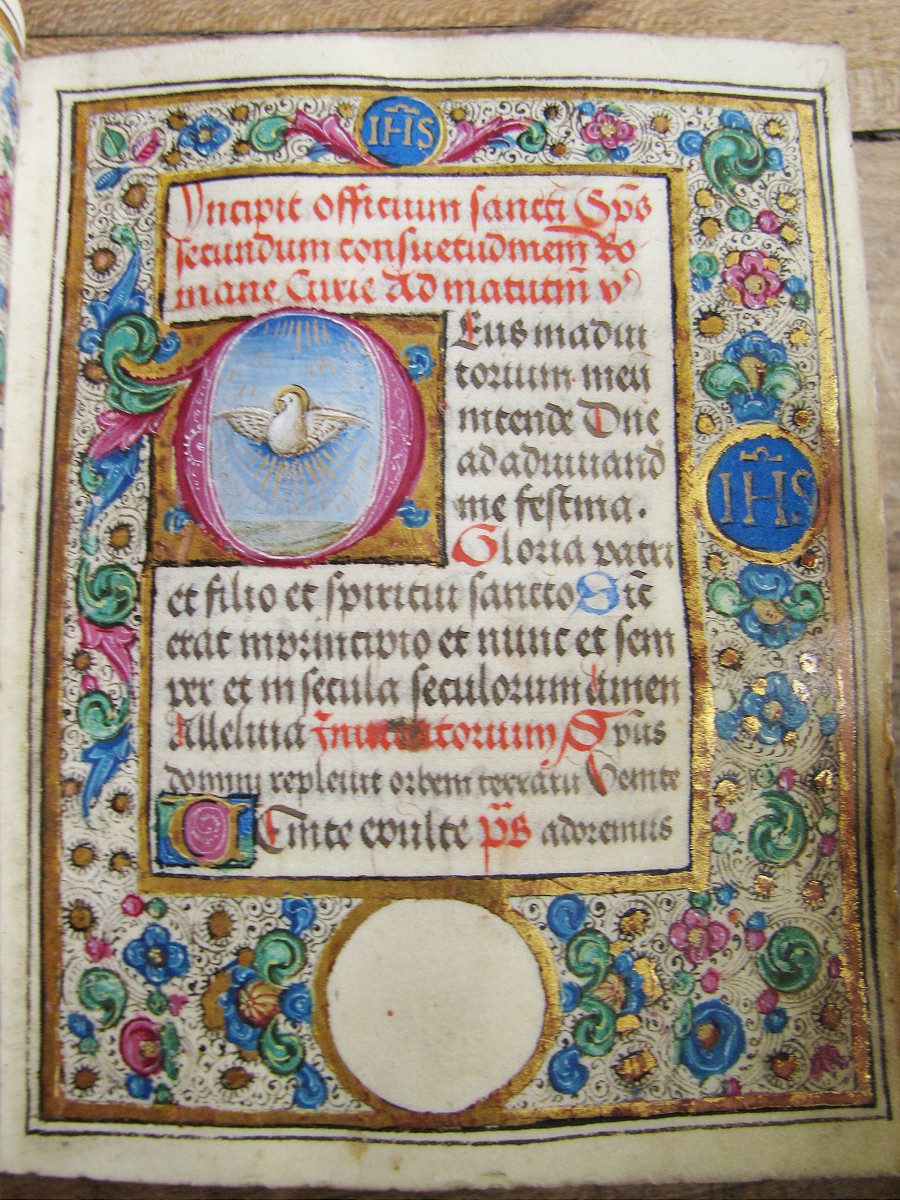 IHS
Yncipit officium sancti Sp̄s
secundum consuetudinem Ro-
mane Curie Ad matutin̄ v᷒
Eus in adiu
torium meū
intende Dn̄e
ad adiuuand̄
me festina.
Gloria patri
et filio et spiritui sancto Sic̄
erat in principio et nunc et sem
per et in secula seculorum amen
Alleluia Inuitatorium Spūs
domini repleuit orbem terrarū Venite
Venite exulte p̄s adoremus
IHS